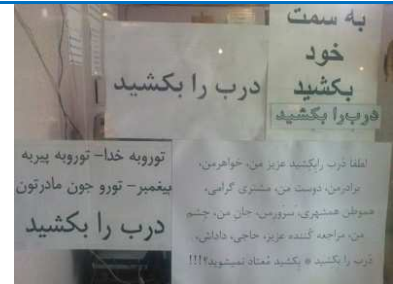 به سمت
خود
بکشید
درب را بکشید
درب را بکشید
توروبه خدا– توروبه پیربه
پیغمبر– تورو جون مادرتون
درب را بکشید
لطفا دَرب رابِکِشید عزیز من، خواهرمن،
برادرمن، دوست من، مشتری گرامی،
هموطن همشهری، سَرورمن، جانِ من، چشم
من، مراجعه کُننده عزیز، حاجی، داداش،
دَرب را بکشید * بِکشید مُعتاد نمیشوید؟!!!